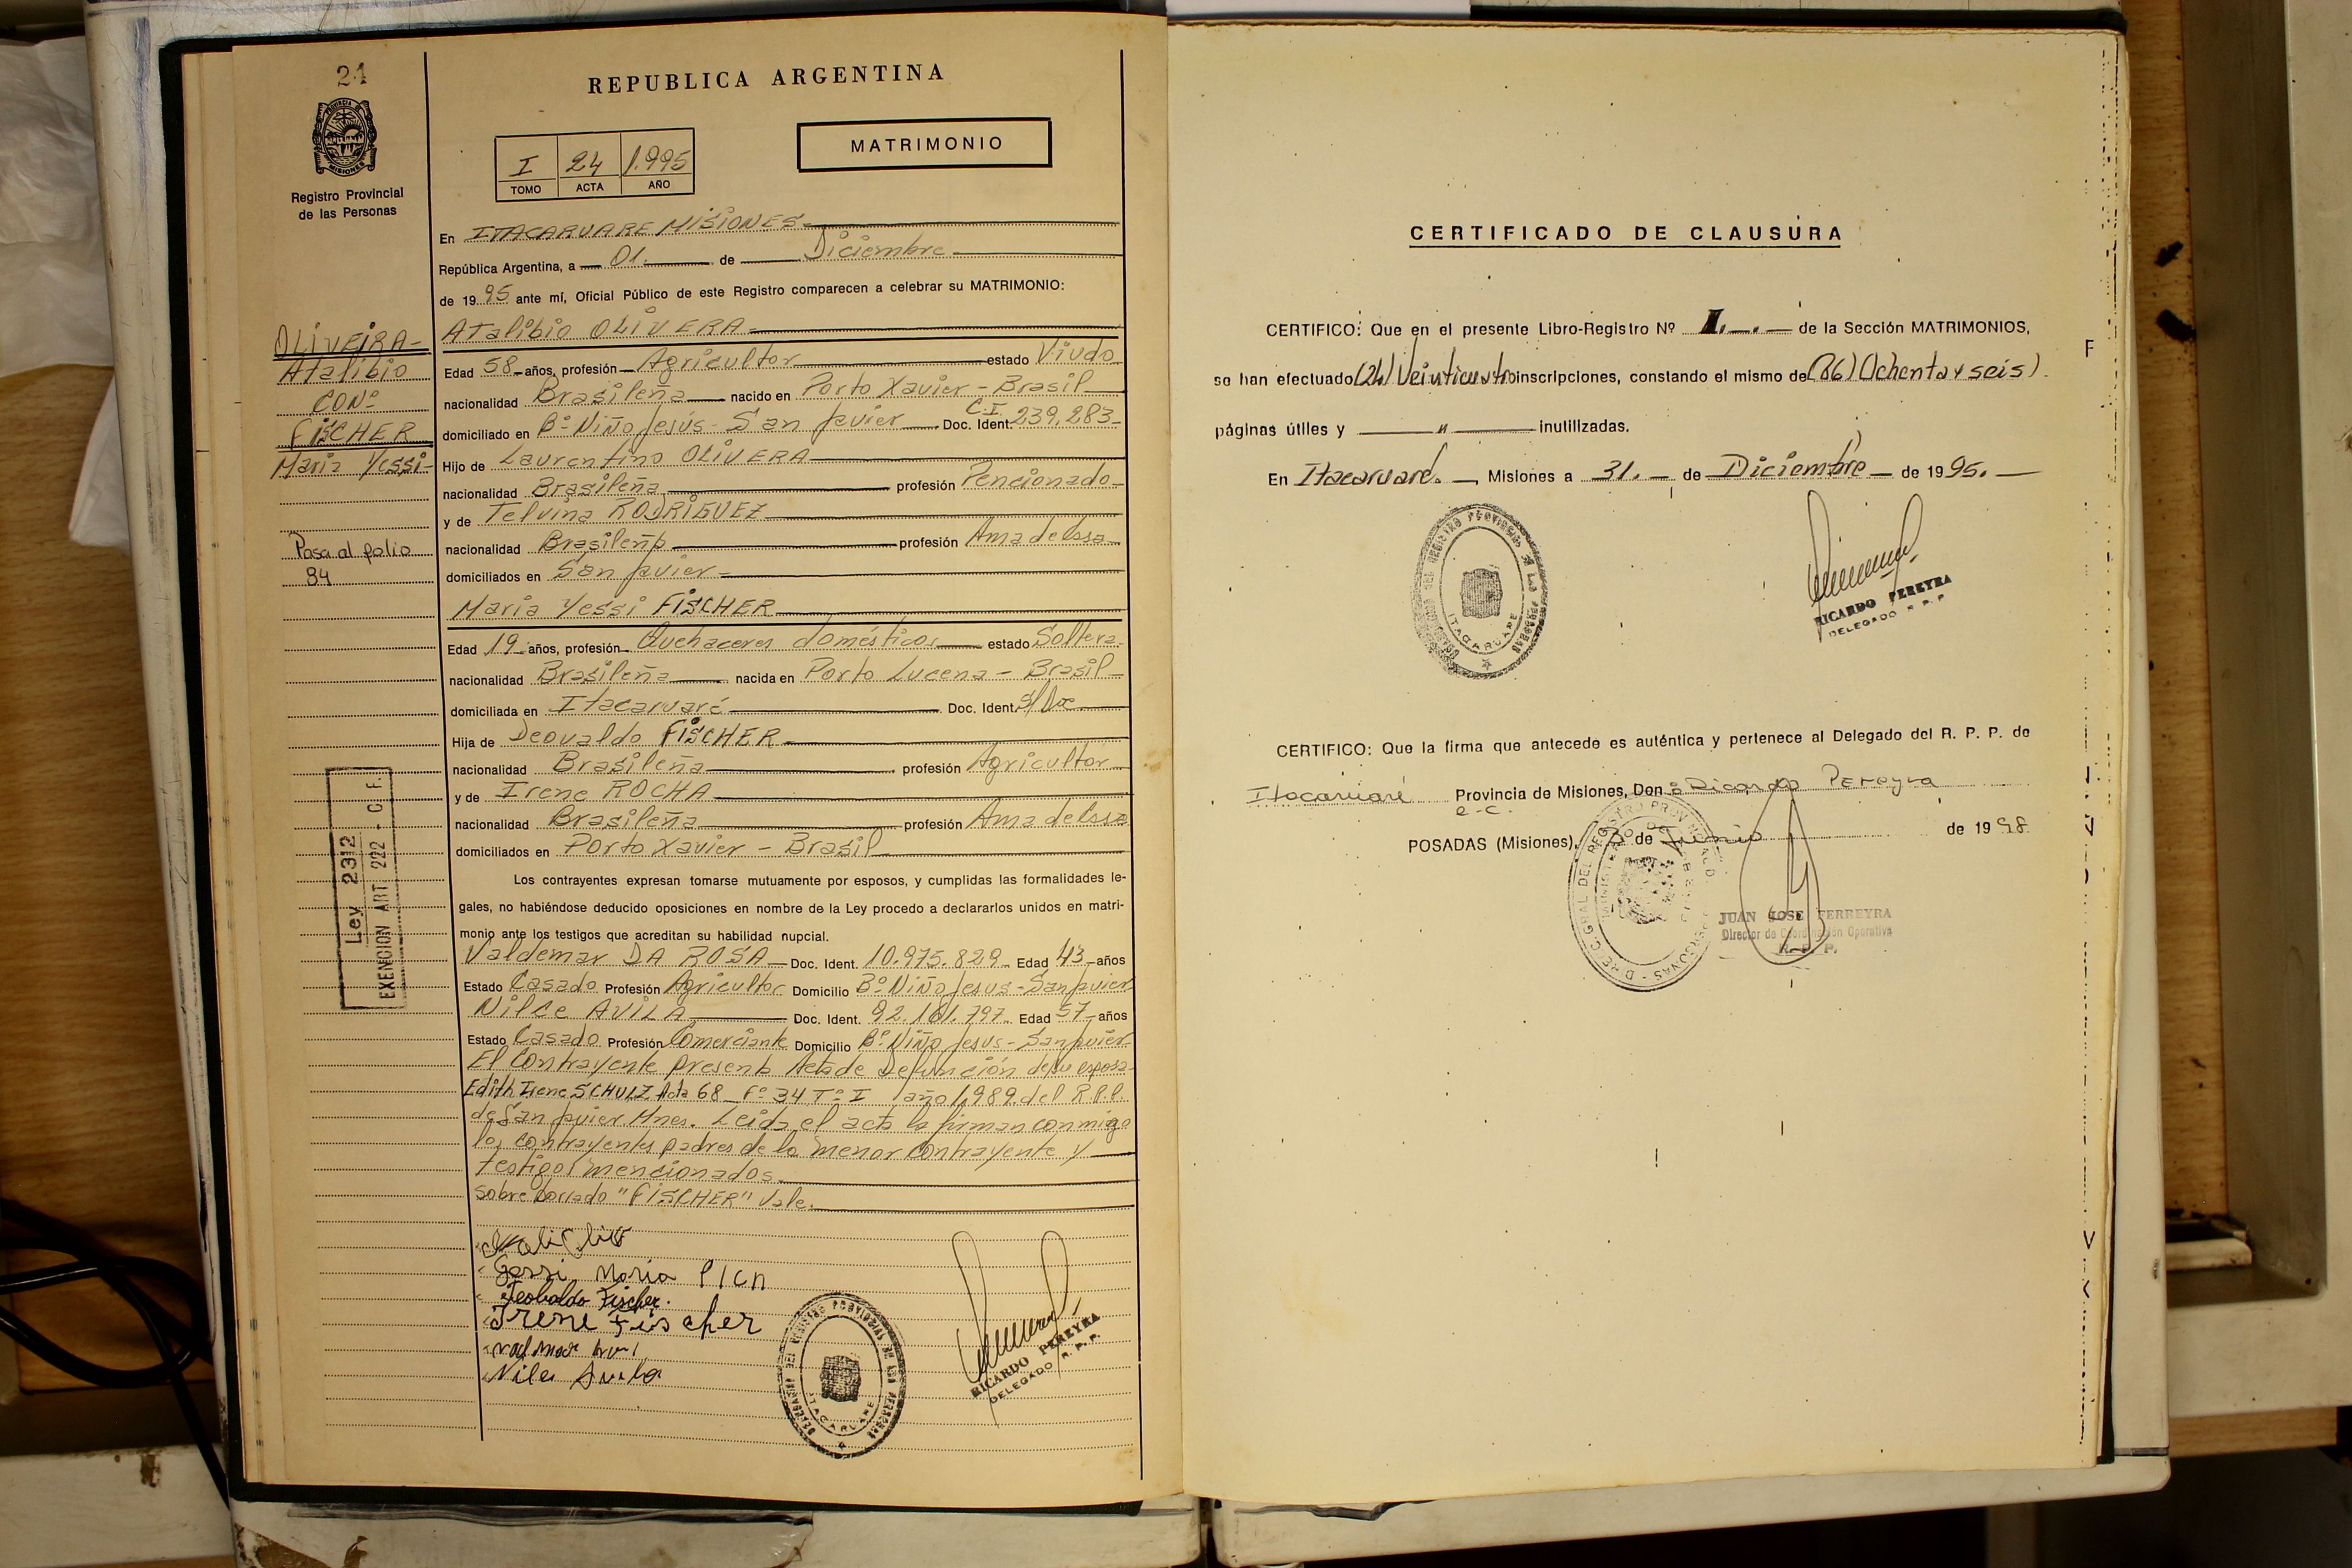 24
PROVINCIA DE
MISIONES
Registro Provincial
de las Personas
OLIVEIRA-
Atalibio
CONº
FISCHER
Maria Yessi-
Pasa al folio
84
Ley 2312
EXENCION ART 222 - C.F.
REPUBLICA ARGENTINA
I 24 1.995
TOMO ACTA AÑO
MATRIMONIO
En ITACARUARE MISIONES-
República Argentina, a 01. de Diciembre
de 1995 ante mí, Oficial Público de este Registro comparecen a celebrar su MATRIMONIO:
Atalibio OLIVERA
Edad 58 años, profesión Agricultor estado Viudo
nacionalidad Brasileña nacido en Porto Xavier - Brasil
domiciliado en Bº Niño Jesús - San Javier Doc. Ident. C.I. 239.283-
Hijo de Laurentino OLIVERA
nacionalidad Brasileña profesión Pencionado-
y de Telvina RODRIGUEZ
nacionalidad Brasileña profesión Ama de Casa
domiciliados en San Javier-
Maria Yessi FISCHER
Edad 19 años, profesión Quehaceres domésticos estado Soltera-
nacionalidad Brasileña nacida en Porto Lucena - Brasil-
domiciliada en Itacaruaré Doc. Ident. S/Doc.
Hija de Deovaldo FISCHER
nacionalidad Brasileña profesión Agricultor
y de Irene ROCHA
nacionalidad Brasileña profesión Ama de Casa
domiciliados en Porto Xavier - Brasil
Los contrayentes expresan tomarse mutuamente por esposos, y cumplidas las formalidades le-
gales, no habiéndose deducido oposiciones en nombre de la Ley procedo a declararlos unidos en matri-
monio ante los testigos que acreditan su habilidad nupcial.
Valdemar DA ROSA Doc. Ident. 10.975.829 Edad 43 años
Estado Casado Profesión Agricultor Domicilio Bº Niño Jesus - San Javier
Nilce AVILA Doc. Ident. 92.161.797 Edad 57 años
Estado Casado Profesión Comerciante Domicilio Bº Niño Jesus - San Javier-
El Contrayente presenta Acta de Defunción de su esposa
Edith Irene SCHULZ Acta 68 Fº 34 Tº I año 1.989 del R.P.P.
de San Javier Mnes. Leida el acta la firman conmigo
los contrayentes padres de la menor contrayente y
testigos mencionados
sobre borrado "FISCHER" Vale.
Maria
Teobaldo Fischer.
Irene Fischer
Avila
DEL REGISTRO PROVINCIAL DE LAS PERSONAS
ITACARUARE
RICARDO PEREYRA
DELEGADO R. P. P.
CERTIFICADO DE CLAUSURA
CERTIFICO: Que en el presente Libro-Registro Nº I.-.- de la Sección MATRIMONIOS,
se han efectuado (24) Veinticuatro inscripciones, constando el mismo de (86) Ochenta y seis)
páginas útiles y " inutilizadas.
En Itacaruaré. Misiones a 31. de Diciembre de 1995.
DEL REGISTRO PROVINCIAL DE LAS PERSONAS
ITACARUARE
RICARDO PEREYRA
DELEGADO R. P. P.
CERTIFICO: Que la firma que antecede es auténtica y pertenece al Delegado del R. P. P. de
Itacaruaré Provincia de Misiones, Don Ricardo Pereyra
e-c.
POSADAS (Misiones), 3 de Junio de 1998
JUAN JOSE FERREYRA
Director de Coordinación Operativa
R. P. P.